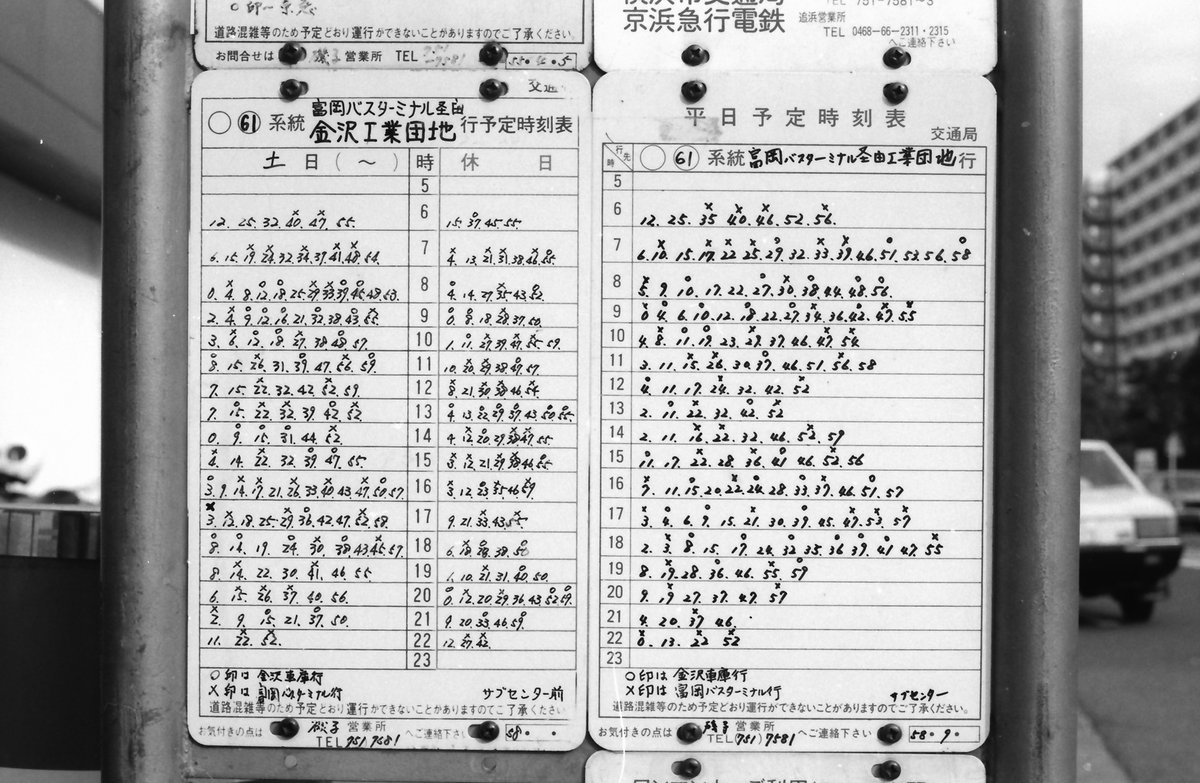 道路混雑等のため予定どおり運行ができないことがありますのでご了承ください。
お問合せは 磯子 営業所 TEL
京浜急行電鉄
追浜営業所
TEL 0468-66-2311・2315
へご連絡下さい
富岡バスターミナル経由
○ 61 系統 金沢工業団地 行予定時刻表
土 日 (~) 時 休 日
5
6 12. 25. 32. 40. 47. 55. 15. 37. 45. 55.
7 6. 15. 19. 24. 32. 34. 37. 41. 48. 54. 4. 13. 21. 31. 38. 46. 55.
8
9 2. 4. 9. 12. 16. 21. 32. 38. 43. 55. 0. 8. 18. 28. 37. 50.
10 3. 6. 12. 18. 27. 38. 48. 57.
11 8. 15. 26. 31. 39. 47. 56. 59.
12 7. 15. 22. 32. 42. 52. 59.
13 7. 15. 22. 32. 39. 42. 52. 4. 13. 22. 29. 37. 43. 50. 55.
14 0. 9. 15. 31. 44. 52.
15 4. 14. 22. 32. 39. 47. 55.
16 3. 9. 14. 17. 21. 26. 33. 40. 43. 47. 50. 57. 3. 12. 23. 35. 46. 59.
17 3. 12. 18. 25. 29. 36. 42. 47. 52. 58. 9. 21. 33. 43. 55.
18 8. 14. 19. 24. 30. 38. 43. 45. 57.
19 8. 14. 22. 30. 41. 46. 55. 1. 10. 21. 31. 40. 50.
20 6. 15. 26. 37. 40. 56. 0. 12. 20. 29. 36. 43. 52. 59.
21 2. 9. 15. 21. 37. 50. 9. 20. 33. 46. 59.
22 11. 22. 52. 12. 27. 42.
23
○印は 金沢車庫行
×印は 富岡バスターミナル行 サブセンター前
道路混雑等のため予定どおり運行ができないことがありますのでご了承ください
お気付きの点は 磯子 営業所 へご連絡下さい 58・ ・
TEL 751 7581
平日予定時刻表
交通局
行先 時 ○ 61 系統 富岡バスターミナル経由工業団地 行
5
6 12. 25. 35. 40. 46. 52. 56.
7 6. 10. 15. 17. 22. 25. 29. 32. 33. 39. 46. 51. 53. 56. 58
8 5. 9. 10. 17. 22. 27. 30. 38. 44. 48. 56.
9 0. 4. 6. 10. 12. 18. 22. 27. 34. 36. 42. 47. 55
10 4. 8. 11. 19. 23. 29. 37. 46. 47. 54
11 3. 11. 15. 26. 30. 37. 46. 51. 56. 58
12 4. 11. 17. 24. 32. 42. 52
13 2. 11. 22. 32. 42. 52
14 2. 11. 16. 22. 32. 46. 52. 59
15 11. 17. 22. 28. 36. 41. 46. 52. 56
16 7. 11. 15. 20. 22. 24. 28. 33. 37. 46. 51. 57
17 3. 4. 6. 9. 15. 21. 30. 39. 45. 49. 53. 57
18 2. 3. 8. 15. 17. 24. 32. 35. 36. 39. 41. 47. 55
19 8. 19. 28. 36. 46. 55. 59
20 9. 19. 27. 37. 47. 57
21 4. 20. 37. 46.
22 0. 13. 22. 52
23
○印は 金沢車庫行
×印は 富岡バスターミナル行 サブセンター
道路混雑等のため予定どおり運行ができないことがありますのでご了承ください。
お気付きの点は 磯子 営業所 へご連絡下さい 58・9・
TEL (751) 7581